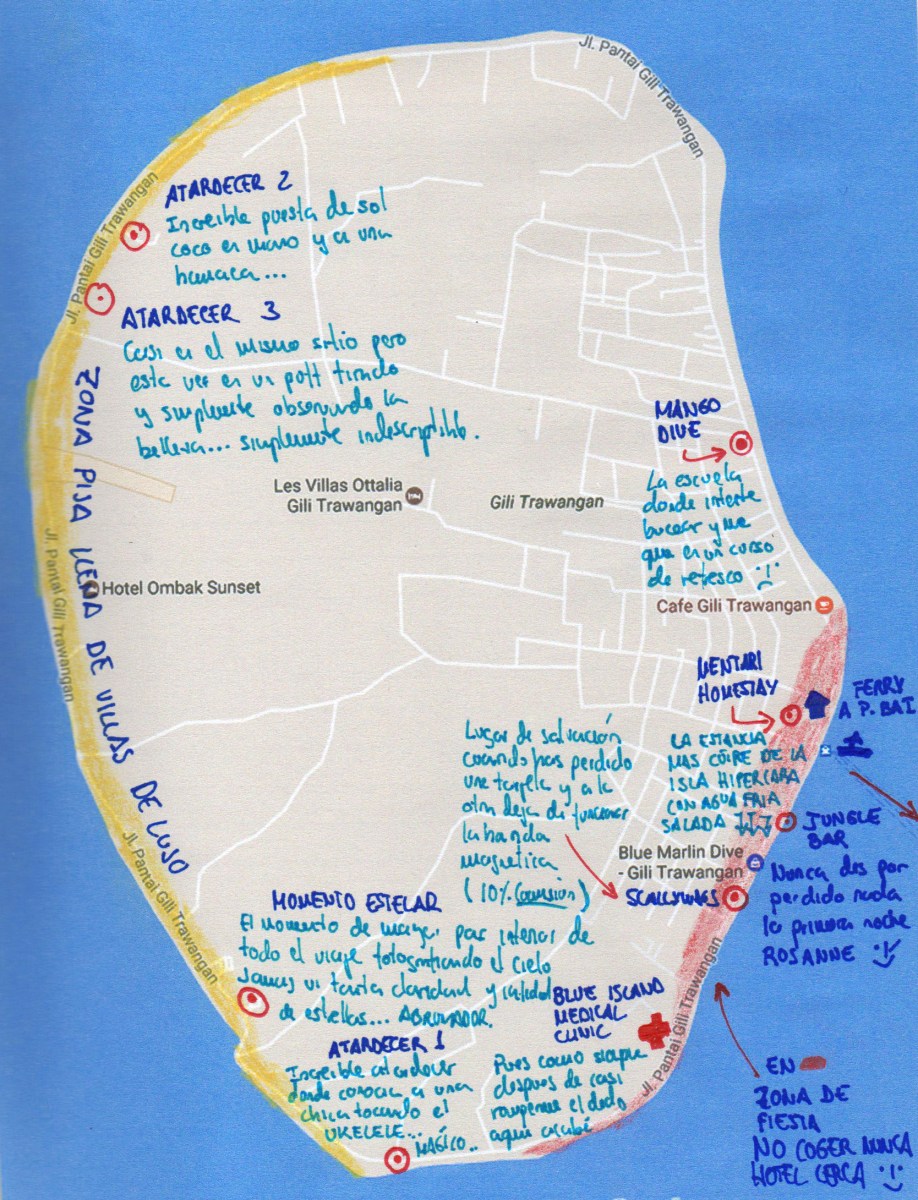 Jl. Pantai Gili Trawangan
ATARDECER 2
Increible puesta de sol
coco en mano y en una
hamaca...
Jl. Pantai Gili Trawangan
ATARDECER 3
Casi en el mismo sitio pero
esta vez en un poff tirado
y simplemente observando la
belleza... simplemente indescriptible.
ZONA PIJA LLENA DE VILLAS DE LUJO
MANGO
DIVE
La escuela
donde intente
bucear y me
que en un curso
de refresco :!
Les Villas Ottalia
Gili Trawangan
Gili Trawangan
Jl. Pantai Gili Trawangan
Hotel Ombak Sunset
Cafe Gili Trawangan
MENTARI
HOMESTAY
FERRY
A P. BAI
LA ESTANCIA
MAS CUTRE DE LA
ISLA HIPERCARA
CON AGUA FRIA
SALADA
Lugar de salvación
cuando has perdido
una tarjeta y a la
otra deja de funcionar
la banda
magnetica
(10% comision)
JUNGLE
BAR
Nunca des por
perdido nada
la primera noche
ROSANNE :)
Blue Marlin Dive
- Gili Trawangan
SCALLYWAGS
Jl. Pantai Gili Trawangan
MOMENTO ESTELAR
El momento de mayor paz interior de
todo el viaje fotografiando el cielo
Jamas vi tanta claridad y cantidad
de estrellas... ABRUMADOR.
BLUE ISLAND
MEDICAL
CLINIC
Pues como siempre
despues de casi
romperme el dedo
aqui acabé
Jl. Pantai Gili Trawangan
ATARDECER 1
Increible atardecer
donde conoci a una
chica tocando el
UKELELE...
MAGICO..
EN
ZONA DE
FIESTA
NO COGER NUNCA
HOTEL CERCA :)